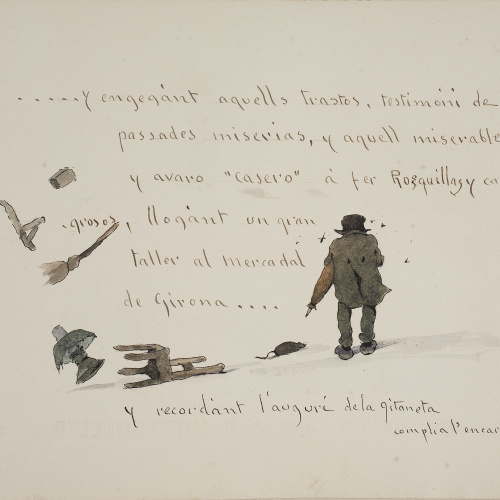 .....y engegànt aquells trastos, testimoni de
passades miserias, y aquell miserable
y avaro "casero" à fer Rosquillas y ca
.grosos, llogànt un gran
taller al mercadal
de Girona....
y recordànt l'auguri de la gitaneta
complia l'encar